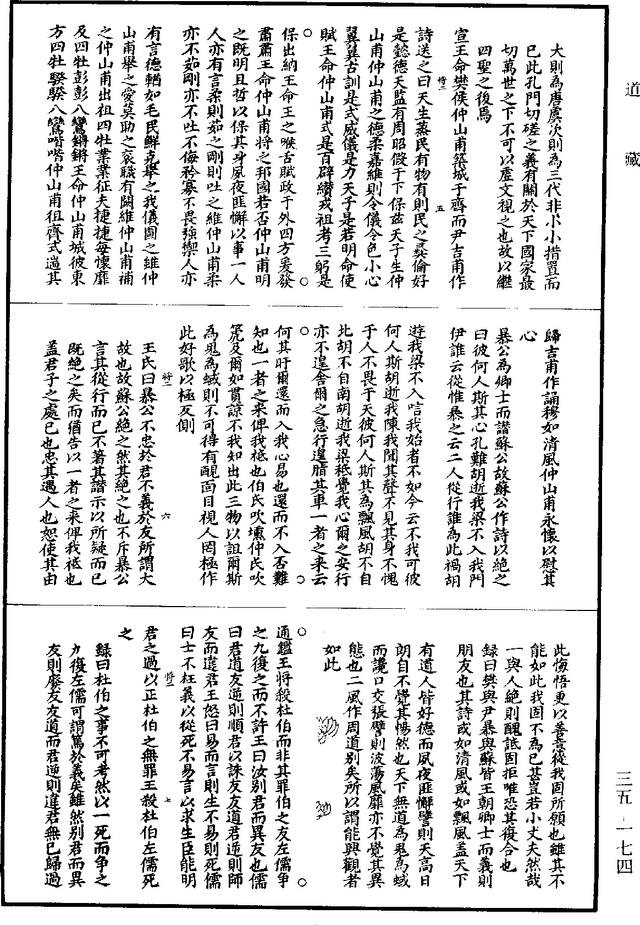 道藏
大則為唐虞次則為三代非小小措置而
已此孔門切磋之義有關於天下國家最
切萬世之下不可以虛文視之也故以繼
四聖之後焉
宣王命樊侯仲山甫築城于齊而尹吉甫作
詩送之曰天生蒸民有物有則民之秉彝好
是懿德天監有周昭假于下保茲天子生仲
山甫仲山甫之德柔嘉維則令儀令色小心
翼翼古訓是式威儀是力天子是若明命使
賦王命仲山甫式是百辟纘戎祖考王躬是
保出納王命王之喉舌賦政于外四方爰發
肅肅王命仲山甫將之邦國若否仲山甫明
之既明且哲以保其身夙夜匪懈以事一人
人亦有言柔則茹之剛則吐之維仲山甫柔
亦不茹剛亦不吐不侮矜寡不畏強禦人亦
有言德輶如毛民鮮克舉之我儀圖之維仲
山甫舉之愛莫助之袞職有闕維仲山甫補
之仲山甫出祖四牡業業征夫捷捷每懷靡
及四牡彭彭八鸞鏘鏘王命仲山甫城彼東
方四牡騤騤八鸞喈喈仲山甫徂齊式遄其
歸吉甫作誦穆如清風仲山甫永懷以慰其
心
暴公為卿士而譖蘇公故蘇公作詩以絕之
曰彼何人斯其心孔艱胡逝我梁不入我門
伊誰云從惟暴之云二人從行誰為此禍胡
逝我梁不入唁我始者不如今云不我可彼
何人斯胡逝我陳我聞其聲不見其身不愧
于人不畏于天彼何人斯其為飄風胡不自
北胡不自南胡逝我梁秪攪我心爾之安行
亦不遑舍爾之亟行遑脂其車一者之來云
何其盱爾還而入我心易也還而不入否難
知也一者之來俾我祇也伯氏吹壎仲氏吹
篪及爾如貫諒不我知出此三物以詛爾斯
為鬼為蜮則不可得有靦面目視人罔極作
此好歌以極反側
王氏曰暴公不忠於君不義於友所謂大
故也故蘇公絕之然其絕之也不斥暴公
言其從行而已不著其譖示以所疑而已
既絕之矣而猶告以一者之來俾我祇也
蓋君子之處己也忠其遇人也恕使其由
此悔悟更以善意從我固所願也雖其不
能如此我固不為已甚豈若小丈夫然哉
一與人絕則醜詆固拒唯恐其復合也
錄曰樊與尹暴與蘇皆王朝卿士而義則
朋友也其詩或如清風或如飄風蓋天下
有道人皆好德而夙夜匪懈譬則天高日
朗自不覺其惕然也天下無道為鬼為蜮
而讒口交張譬則波蕩風靡亦不覺其異
態也二風作周道別矣所以謂能興觀者
如此
通鑑王將殺杜伯而非其罪伯之友左儒爭
之九復之而不許王曰汝別君而異友也儒
曰君道友逆則順君以誅友友道君逆則師
友而違君王怒曰易而言則生不易則死儒
曰士不枉義以從死不易言以求生臣能明
君之過以正杜伯之無罪王殺杜伯左儒死
之
錄曰杜伯之事不可考然以一死而爭之
九復左儒可謂篤於義矣雖然別君而異
友則廢友友道而君逆則違君無已歸過
三五－一七四